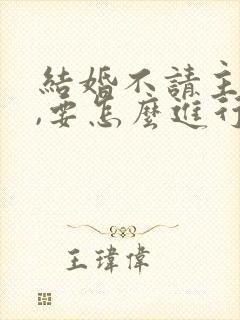 結婚不請主
,要怎麼進行
王瑋偉